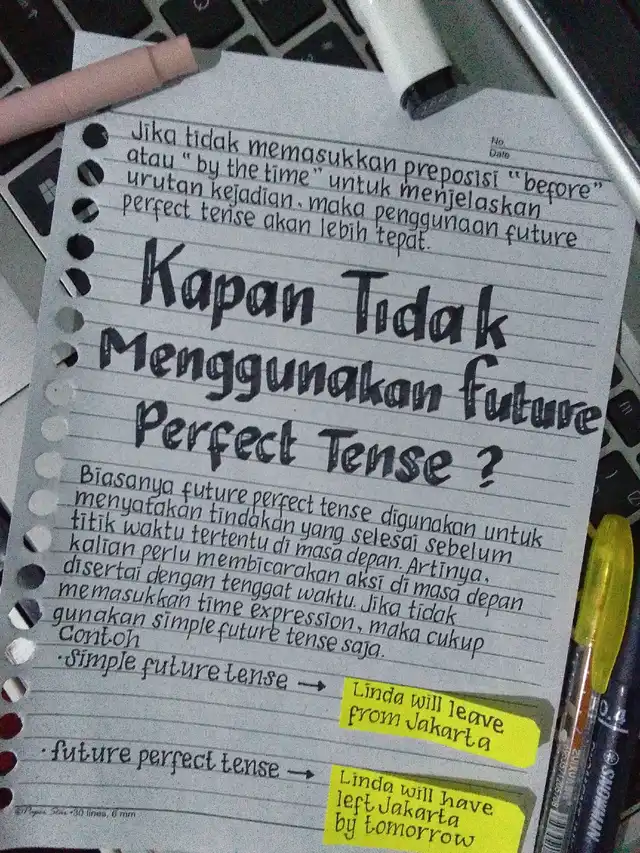 No
Date
Jika tidak memasukkan preposisi "before"
atau "by the time" untuk menjelaskan
urutan kejadian, maka penggunaan future
perfect tense akan lebih tepat.
Kapan Tidak
Menggunakan future
Perfect Tense ?
Biasanya future perfect tense digunakan untuk
menyatakan tindakan yang selesai sebelum
titik waktu tertentu di masa depan. Artinya,
kalian perlu membicarakan aksi di masa depan
disertai dengan tenggat waktu. Jika tidak
memasukkan time expression, maka cukup
gunakan simple future tense saja.
Contoh
· Simple future tense →
Linda will leave
from Jakarta
· future perfect tense →
Linda will have
left Jakarta
by tomorrow
30 lines, 6 mm
SNOWMAN